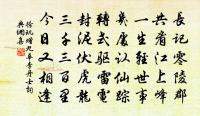 長記零陵郡
共看江上峰
一生經世事
幾處認仙踪
轉式驅雷電
封泥伏虎龍
三千三百
今日又相逢
徐玑贈九華李丹士詞